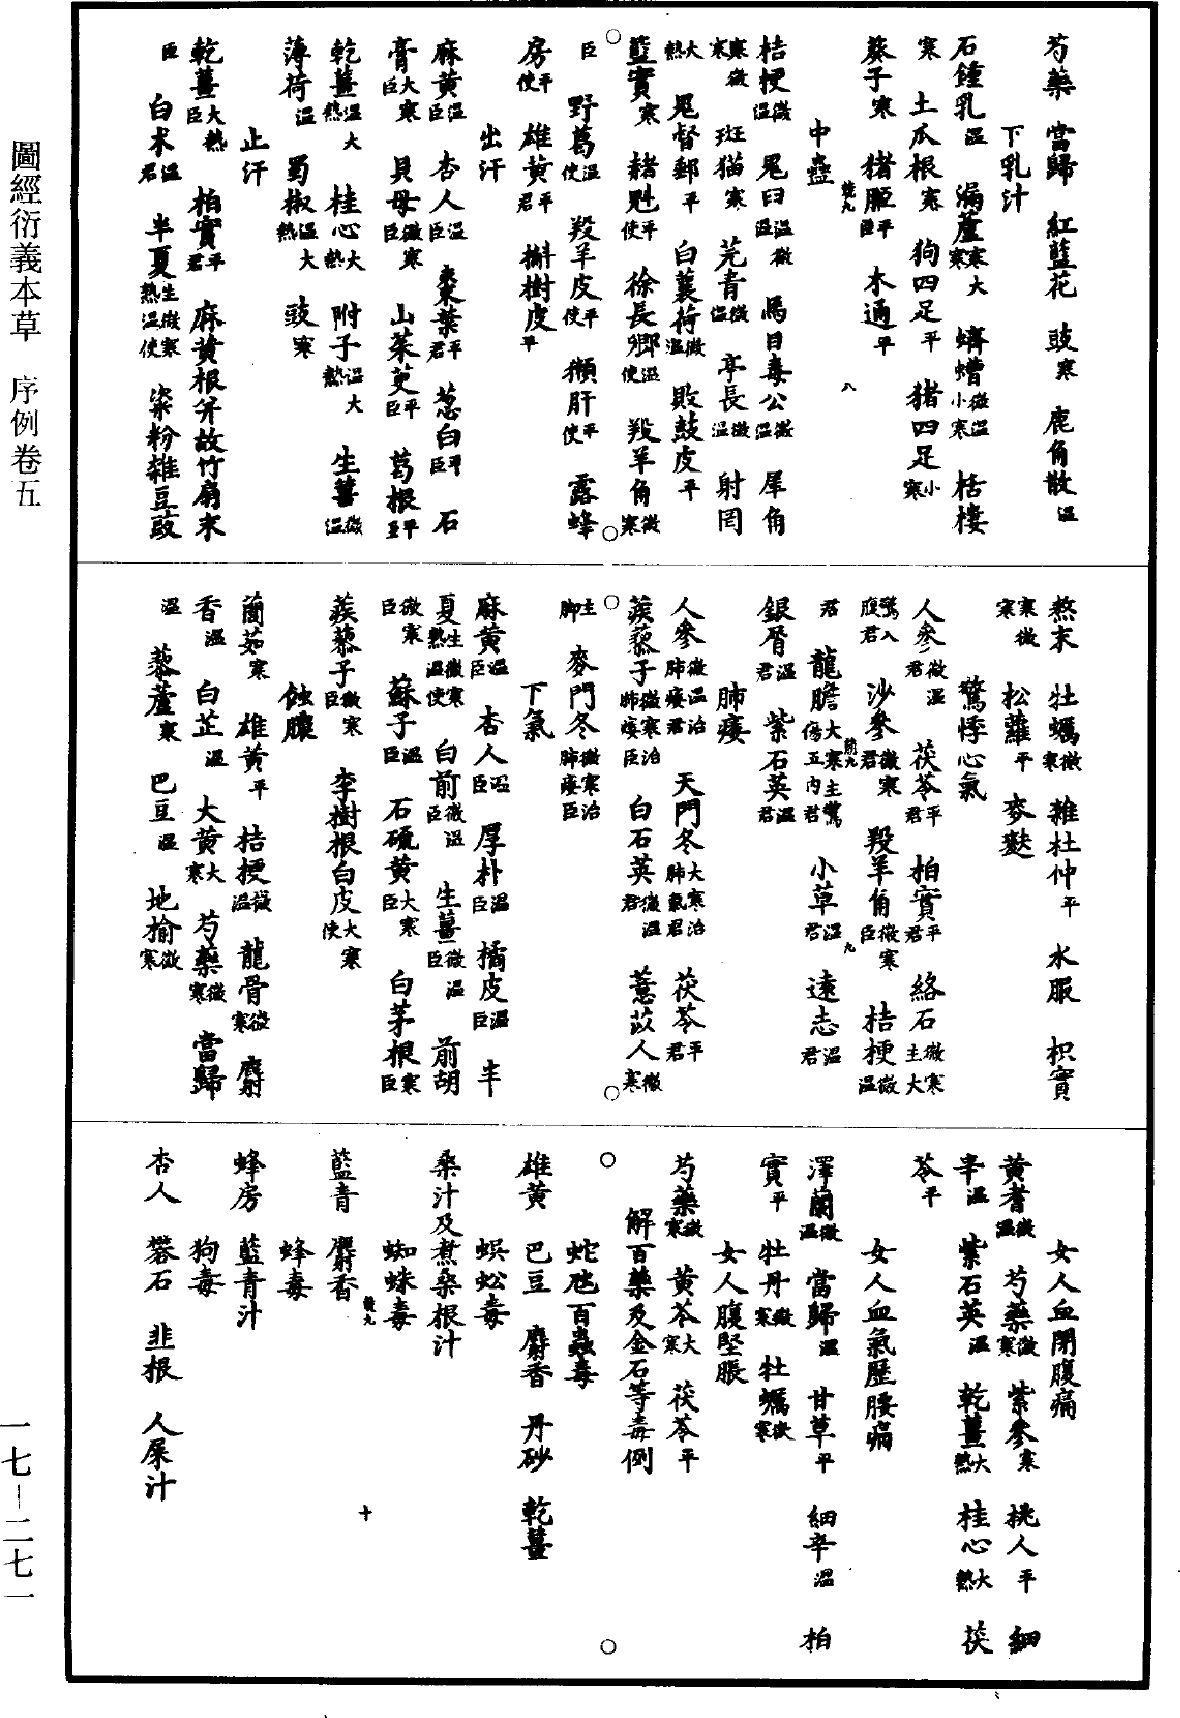 圖經衍義本草　序例卷五
一七—二七一
芍藥　當歸　紅藍花　豉寒　鹿角散溫
下乳汁
石鍾乳溫　漏蘆寒大寒　蠐螬微溫小寒　栝樓
寒　土瓜根寒　狗四足平　猪四足小寒
葵子寒　猪䐁平臣　木通平
中蠱
桔梗微溫　鬼臼溫微溫　馬目毒公微溫　犀角
寒微寒　斑猫寒　芫青微溫　亭長微溫　射罔
大熱　鬼督郵平　白蘘荷微溫　敗鼓皮平
藍實寒　赭魁平使　徐長卿溫使　羖羊角微寒
臣　野葛溫使　羖羊皮平使　獺肝平使　露蜂
房平使　雄黃平君　槲樹皮平
出汗
麻黃溫臣　杏人溫臣　棗葉平君　葱白平臣　石
膏大寒臣　貝母微寒臣　山茱萸平臣　葛根平臣
乾薑溫大熱　桂心大熱　附子溫大熱　生薑微溫
薄荷溫　蜀椒溫大熱　豉寒
止汗
乾薑大熱臣　柏實平君　麻黃根并故竹扇末
臣　白朮溫君　半夏生微寒熱溫使　粢粉雜豆豉
熬末　牡蠣微寒　雜杜仲平　水服　枳實
寒微寒　松蘿平　麥麩
驚悸心氣
人參微溫君　茯苓平君　柏實平君　絡石微寒主大
驚入腹君　沙參微寒君　羖羊角微寒臣　桔梗微溫
君　龍膽大寒主驚傷五內君　小草溫君　遠志溫君
銀屑溫君　紫石英溫君
肺痿
人參微溫治肺痿君　天門冬大寒治肺氣君　茯苓平君
蒺藜子微寒治肺痿臣　白石英微溫君　薏苡人微寒
主脚　麥門冬微寒治肺痿臣
下氣
麻黃溫臣　杏人溫臣　厚朴溫臣　橘皮溫臣　半
夏生微寒熱溫使　白前微溫臣　生薑微溫臣　前胡
微寒臣　蘇子溫臣　石硫黃大寒臣　白茅根寒臣
蒺藜子微寒臣　李樹根白皮大寒使
蝕膿
䕡茹寒　雄黃平　桔梗微溫　龍骨微寒　麝
香溫　白芷溫　大黃大寒　芍藥微寒　當歸
溫　藜蘆寒　巴豆溫　地榆微寒
女人血閉腹痛
黃耆微溫　芍藥微寒　紫參寒　桃人平　細
辛溫　紫石英溫　乾薑大熱　桂心大熱　茯
苓平
女人血氣歷腰痛
澤蘭微溫　當歸溫　甘草平　細辛溫　柏
實平　牡丹微寒　牡蠣微寒
女人腹堅脹
芍藥微寒　黃芩大寒　茯苓平
解百藥及金石等毒例
蛇虺百蟲毒
雄黃　巴豆　麝香　丹砂　乾薑
蜈蚣毒
桑汁及煮桑根汁
蜘蛛毒
藍青　麝香
蜂毒
蜂房　藍青汁
狗毒
杏人　礬石　韭根　人屎汁